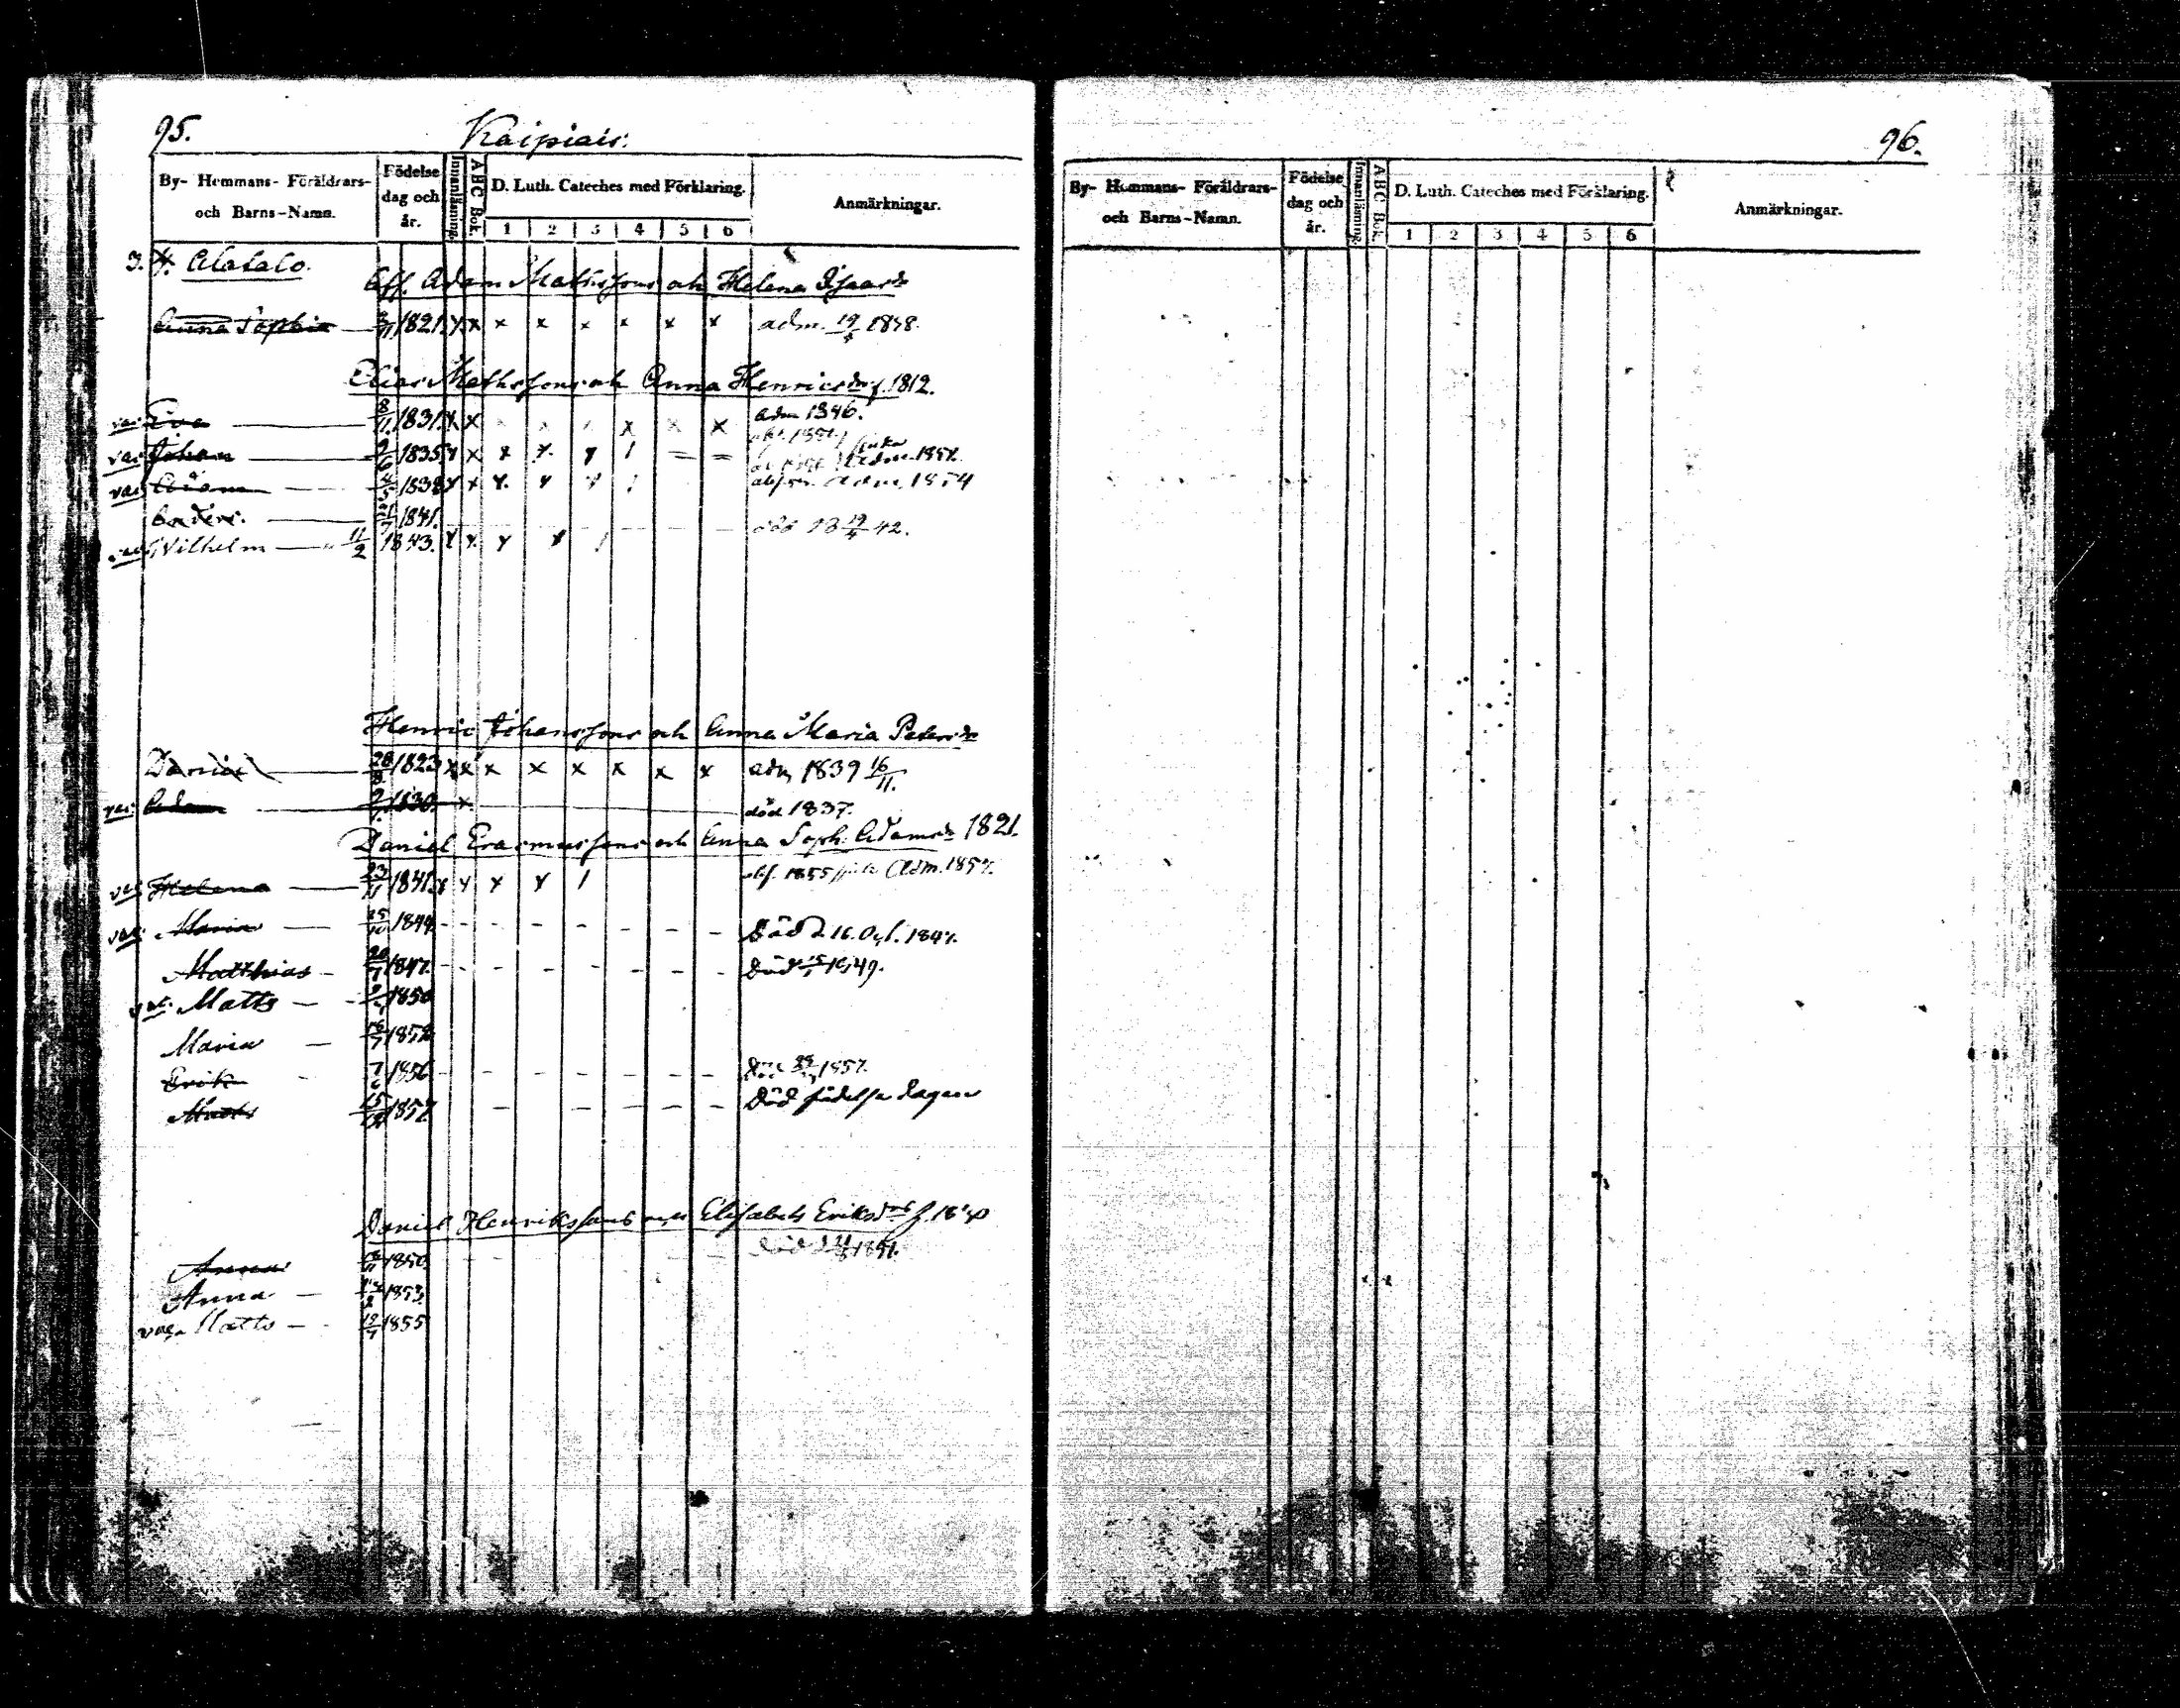 95.
Kaipiais:
By- Hemmans- Föräldrars- och Barns-Namn.
Födelse dag och år.
Innanläsning.
A B C Bok.
D. Luth. Cateches med Förklaring.
1 2 3 4 5 6
Anmärkningar.
3. 4. Alatalo.
Aff. Adam Mathssons och Helena Isaacsdr
Anna Sophia 1821. x x x x x x x x adm. 19/4 1838.
Elias Mathssons och Anna Henricsdr f. 1812.
vac: Eva 8/11 1831. x x x x adm 1846.
vac Johan 9/6 1835 x x x x y 1 = = adm. 1857.
vac Adam 1838 x x x x x 1 adm. 1854
Anders. 1841. död 18 19/4 42.
Wilhelm 11/2 1843. x x y x 1
Henric Johanssons och Anna Maria Petersdr
Daniel 28/8 1823 x x x x x x x x adm 1839 16/11.
vac: Adam 1830. x. död 1837.
Daniel Erasmussons och Anna Soph: Adamsdr 1821.
vac Helena 23/11 1841. x y x y 1 1855 Adm. 1857.
vac: Maria 25/10 1844 - - - - - - - Död d. 16. Oct. 1847.
Matthias - 20/7 1847. - - - - - - - Död 1849.
vac: Matts - 1850
Maria - 16/7 1852
Erik 7/6 1856 - - - - - - 1857.
Matts 1857. - - - - - - Död födelse dagen
Daniel Henrikssons och Elisabeth Eriksdrs f.
Anna 1850 - - - - Död 1851.
Anna - 1853
vac. Matts - 19/7 1855
96.
By- Hemmans- Föräldrars- och Barns-Namn.
Födelse dag och år.
Innanläsning.
A B C Bok.
D. Luth. Cateches med Förklaring.
1 2 3 4 5 6
Anmärkningar.